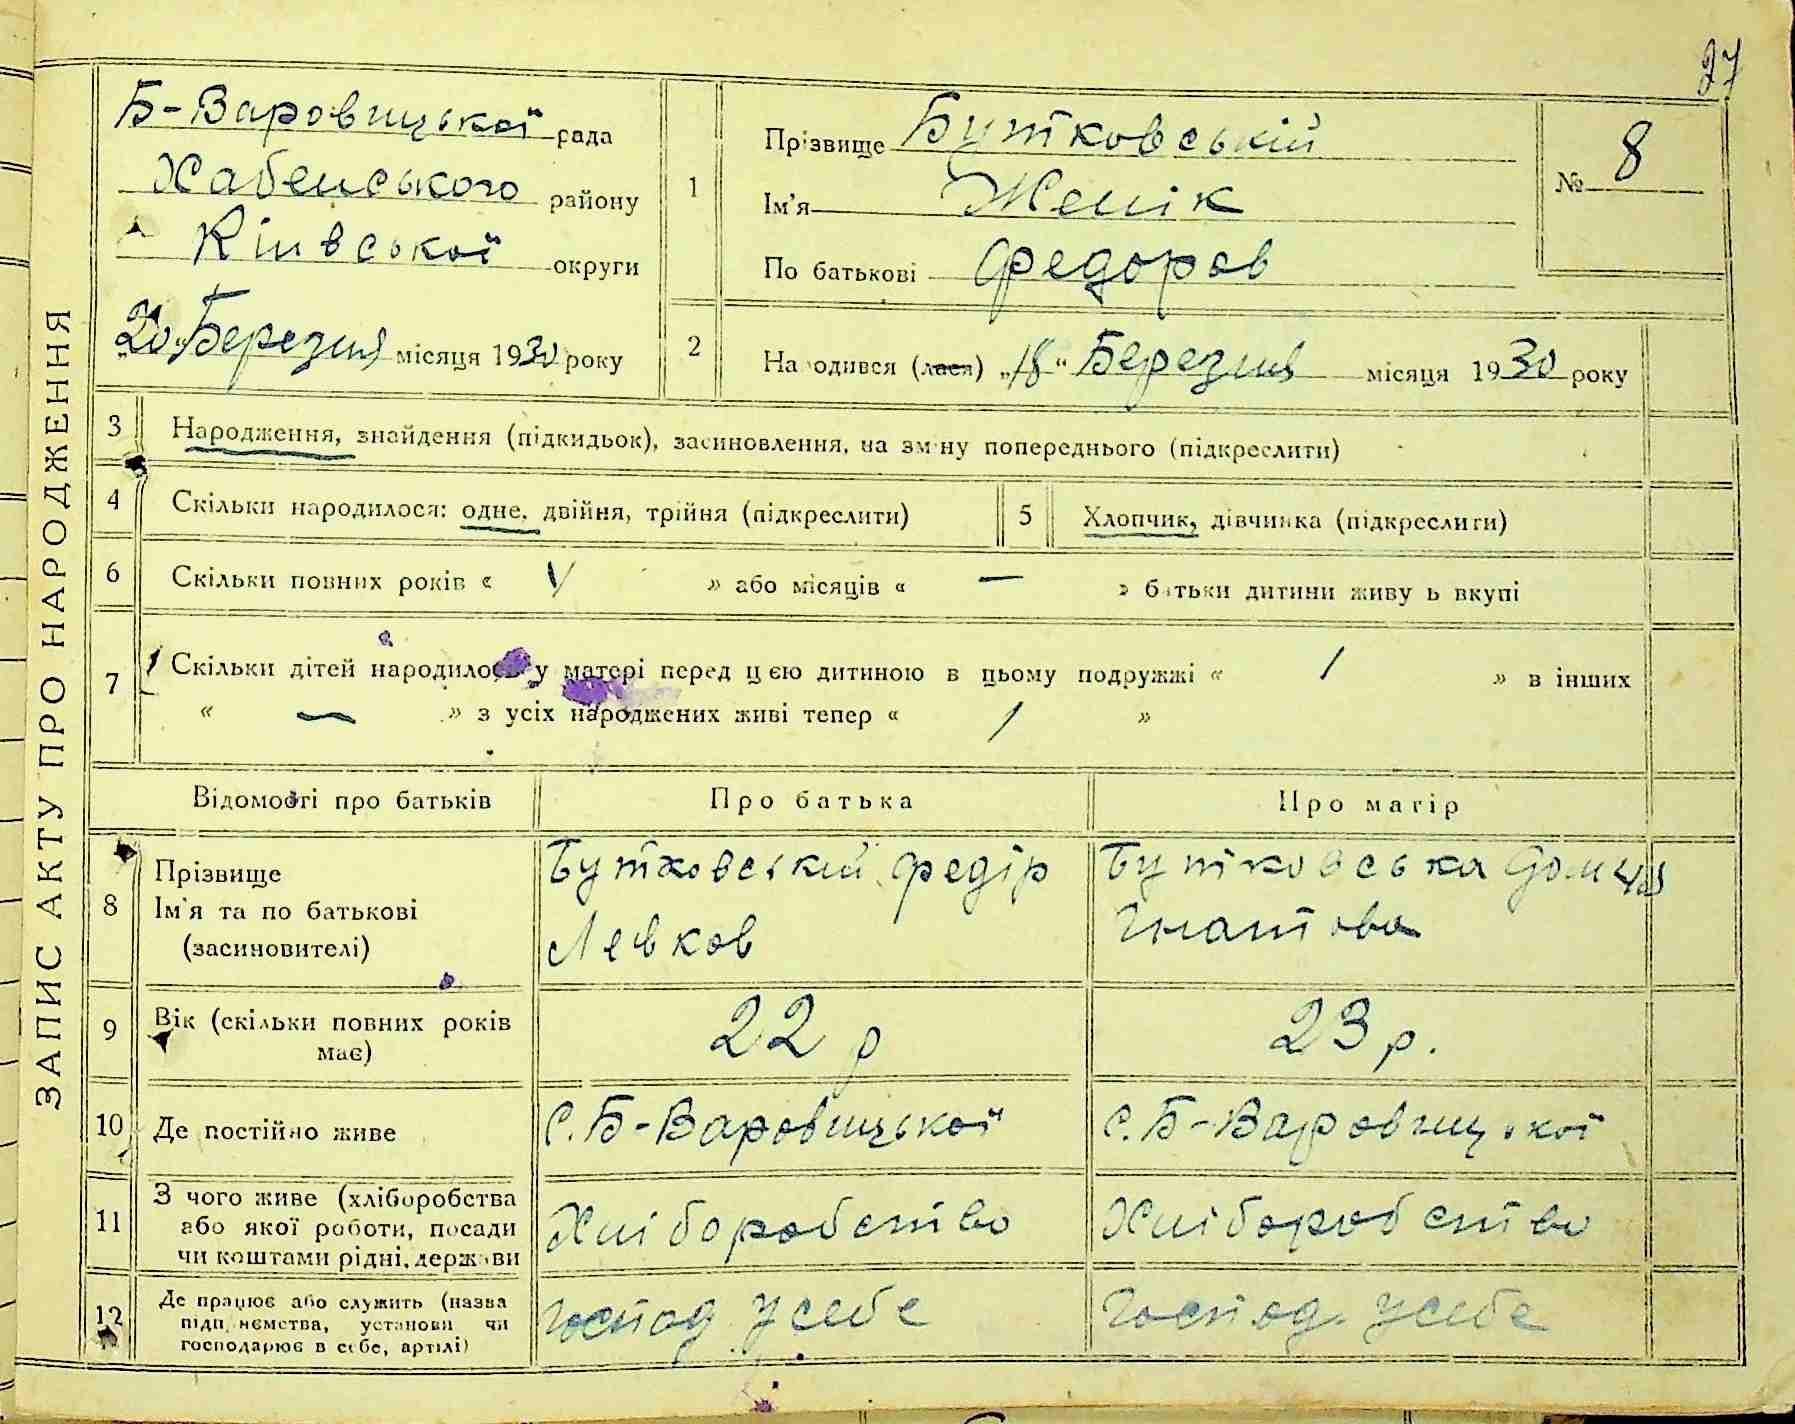 27
ЗАПИС АКТУ ПРО НАРОДЖЕННЯ
Б-Варовицької рада
Хабенського району
Київської округи
„20“ Березня місяця 1930 року
1
Прізвище Бутковській
Ім'я Женік
По батькові Федоров
№ 8
2
Народився (лася) „18“ Березня місяця 1930 року
3 Народження, знайдення (підкидьок), засиновлення, на зміну попереднього (підкреслити)
4 Скільки народилося: одне, двійня, трійня (підкреслити)
5 Хлопчик, дівчинка (підкреслити)
6 Скільки повних років « V » або місяців « — » батьки дитини живуть вкупі
7 Скільки дітей народилось у матері перед цією дитиною в цьому подружжі « 1 » в інших
« — » з усіх народжених живі тепер « 1 »
Відомості про батьків Про батька Про матір
8 Прізвище
Ім'я та по батькові
(засиновителі)
Бутковський Федір
Левков
Бутковська Домна
Гнатова
9 Вік (скільки повних років
має)
22 р
23 р.
10 Де постійно живе
С. Б-Варовицької
С. Б-Варовицької
11 З чого живе (хліборобства
або якої роботи, посади
чи коштами рідні, держави
Хліборобство
Хліборобство
12 Де працює або служить (назва
підприємства, установи чи
господарює в себе, артілі)
Господ. у себе
Господ. у себе